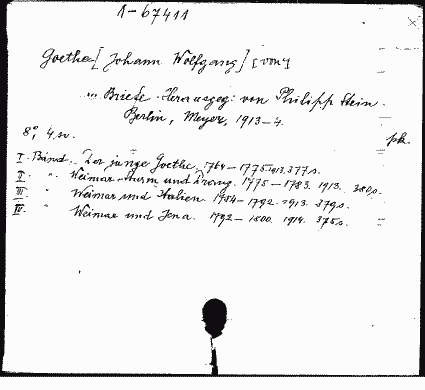 1-67411
Goethe [Johann Wolfgang] [von]
... Briefe. Herausgeg. von Philipp Stein.
Berlin, Meyer, 1913-
8°, 4 sv. pk.
I. Band. Der junge Goethe. 1764-1775. 1913. 377 s.
II. " Weimar Sturm und Drang. 1775-1783. 1913. 380 s.
III. " Weimar und Italien. 1784-1792. 1913. 379 s.
IV. " Weimar und Jena. 1792-1800. 1914. 375 s.